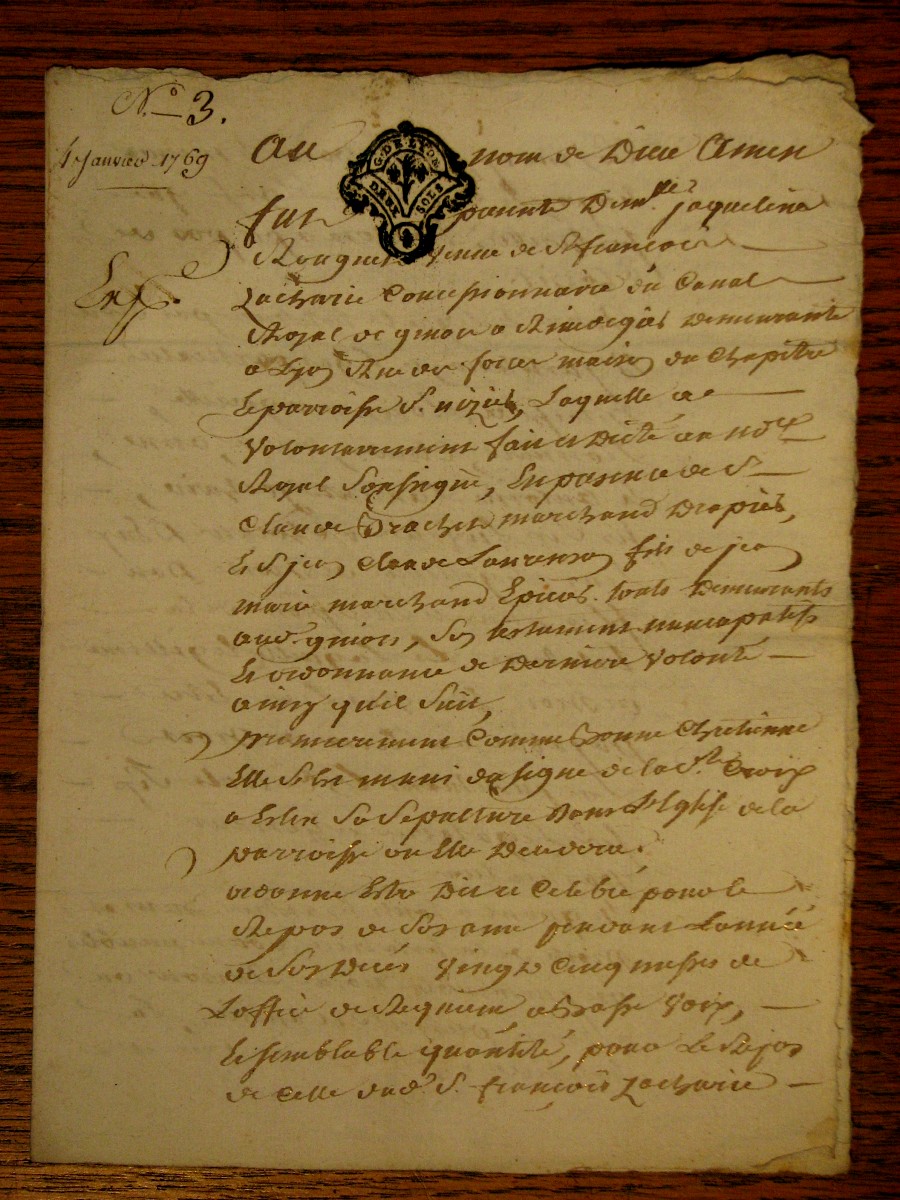 N.o 3.
4 Janvier 1769
au nom de Dieu Amen
G. DE LYON
DEUX SOLS
fut pnte Dem.lle jaqueline
veuve de Sr françois
Zacharie Concessionnaire du Canal
Royal de givors a Rivedegiés Demeurante
a Lyon Rue maison du Chapitre
et parroisse St. nizier, Laquelle a
volontairement fait et Dicté au no.re
Royal Soussigné, En presence de Sr
Claude marchand Drapier,
Et Sr jean Claude fils de jean
marie marchand Epicier. touts Demeurants
aud. givors, Son testament nuncupatif
Et ordonnance de Derniere Volonté
ainsy qu'il Suit,
premierement Comme bonne Chretienne
Elle S'est muni du Signe de la Ste. Croix
a Eslu Sa Sepulture Dans L'Eglise de la
parroisse ou Elle Decedera.
ordonne Estre Dit et Celebré pour le
Repos de Son ame pendant L'année
de Son Decés vingt Cinq messes de
L'office de Requiem, a basse Voix,
Et semblable quantité, pour Le Repos
de Celle dud. Sr. françois Zacharie